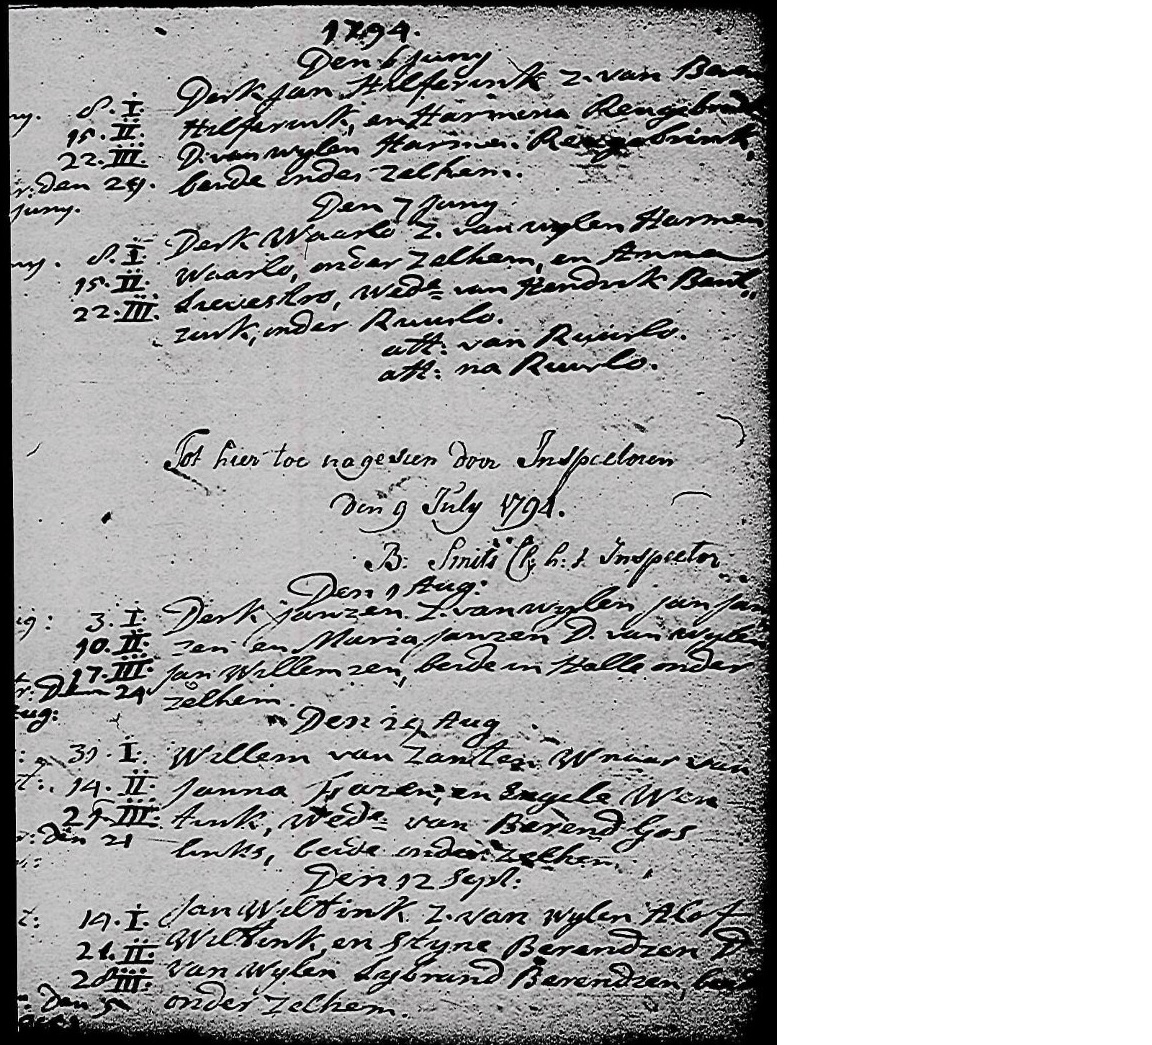 1794.
Den 6 Juny
Derk Jan Hilferink Z. van Beren
ny. 8. I. Hilferink, en Harmina Rengebrink
15. II. D. van wylen Harmen Rengebrink,
22. III. beide onder Zelhem.
r. den 29.
Juny.
Den 7 Juny
Derk Waarlo Z. van wylen Harmen
ny. 8. I. Waarlo, onder Zelhem, en Anna
15. II. wede van Hendrik Beul„
22. III. zink, onder Ruurlo.
att: van Ruurlo.
att: na Ruurlo.
Tot hier toe nagesien door Inspectoren
den 9 July 1794.
B: Smits h. t. Inspector
Den 1 Aug:
ug: 3. I. Derk Janzen Z. van wylen Jan Jan
10. II. zen en Maria Janzen D. van wylen
17. III. Jan Willemzen, beide in Halle onder
r. Den 24 Zelhem.
Aug:
Den 29 Aug
31. I. Willem van Zanten Wnaar van
t: 14. II. Janna en Engele Wen
21. III. tink, wede van Berend Gos
r: den 21 links, beide onder Zelhem.
Den 12 Sept:
t: 14. I. Jan Wiltink Z. van wylen Alof
21. II. Wiltink, en Styne Berendzen D
28. III. van wylen Sybrand Berendzen, bei
den 5 onder Zelhem.